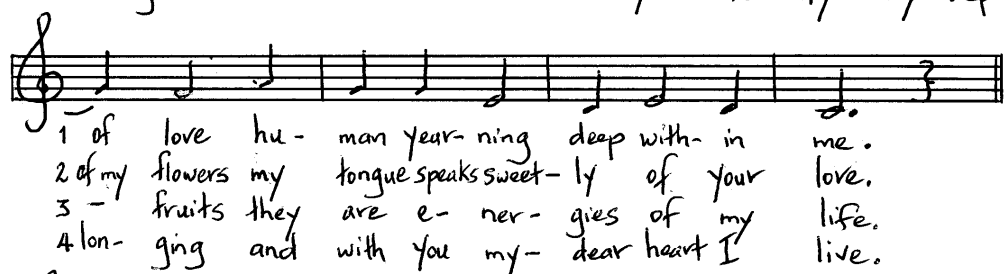 1 of love hu- man year- ning deep with- in me.
2 of my flowers my tongue speaks sweet- ly of your love.
3 - fruits they are e- ner- gies of my life.
4 lon- ging and with you my- dear heart I live.